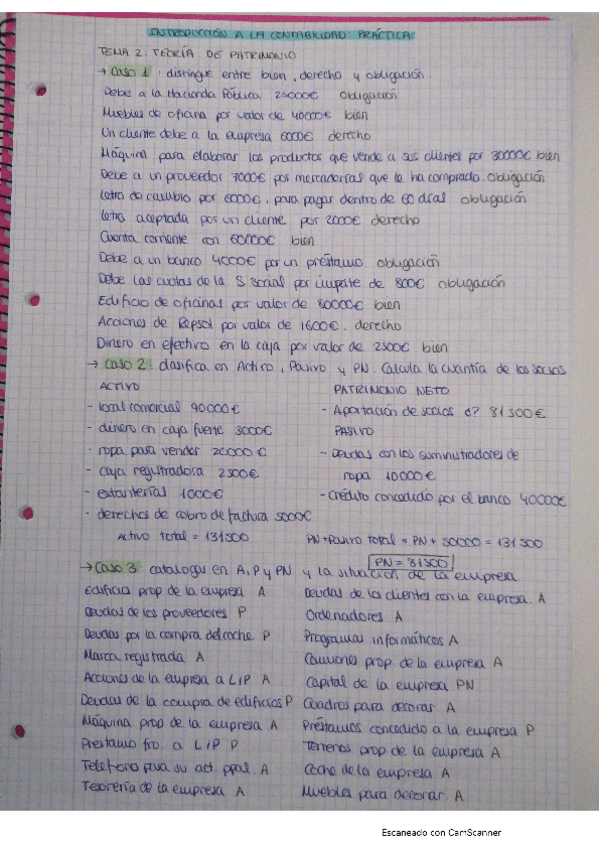 INTRODUCCIÓN A LA CONTABILIDAD: PRÁCTICA:
TEMA 2: TEORÍA DE PATRIMONIO
→ Caso 1: distingue entre bien, derecho y obligación.
Debe a la Hacienda Pública 25000€ obligación
Muebles de oficina por valor de 40000€ bien
Un cliente debe a la empresa 6000€ derecho
Máquina para elaborar los productos que vende a sus clientes por 30000€ bien
Debe a un proveedor 7000€ por mercaderías que le ha comprado. obligación
Letra de cambio por 6000€, para pagar dentro de 60 días obligación
Letra aceptada por un cliente por 2000€ derecho
Cuenta corriente con 60000€ bien
Debe a un banco 4000€ por un préstamo. obligación
Debe las cuotas de la S. social por importe de 800€ obligación
Edificio de oficinas por valor de 80000€ bien
Acciones de Repsol por valor de 1600€. derecho
Dinero en efectivo en la caja por valor de 2500€ bien
→ Caso 2: clasifica en Activo, Pasivo y PN. Calcula la cuantía de los socios
ACTIVO
- local comercial 90000€
- dinero en caja fuerte 3000€
- ropa para vender 20000€
- caja registradora 2500€
- estanterías 1000€
- derechos de cobro de factura 5000€
Activo total = 131500
PATRIMONIO NETO
- Aportación de socios ¿? 81500€
PASIVO
- Deudas con los suministradores de
ropa 10000€
- Crédito concedido por el banco 40000€
PN + Pasivo total = PN + 50000 = 131500
PN = 81500
→ Caso 3: catalogas en A, P y PN y la situación de la empresa
Edificios prop de la empresa A
Deudas de los proveedores P
Deudas por la compra del coche P
Marca registrada A
Acciones de la empresa a L/P A
Deudas de la compra de edificios P
Máquina prop de la empresa A
Prestamo fro. a L/P P
Teléfono para su act. ppal. A
Tesorería de la empresa A
Deudas de los clientes con la empresa. A
Ordenadores A
Programas informáticos A
Camiones prop de la empresa A
Capital de la empresa PN
Cuadros para decorar A
Préstamos concedido a la empresa P
Terrenos prop de la empresa A
Coche de la empresa A
Muebles para decorar. A
Escaneado con CamScanner